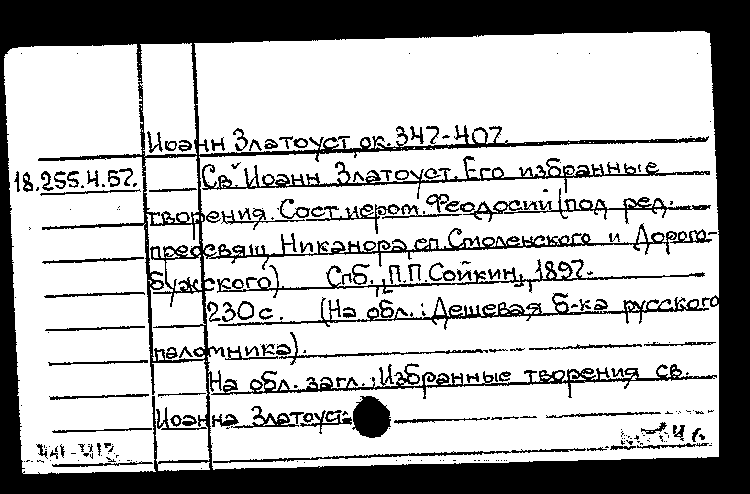 Иоанн Златоуст, ок. 347-407.
18.255.4.57. Св. Иоанн Златоуст. Его избранные
творения. Сост. иером. Феодосий (под ред.
преосвящ. Никанора, еп. Смоленского и Дорого-
бужского). Спб., П.П. Сойкин, 1897.
230 с. (На обл.: Дешевая б-ка русского
паломника).
На обл. загл.: Избранные творения св.
Иоанна Златоуста